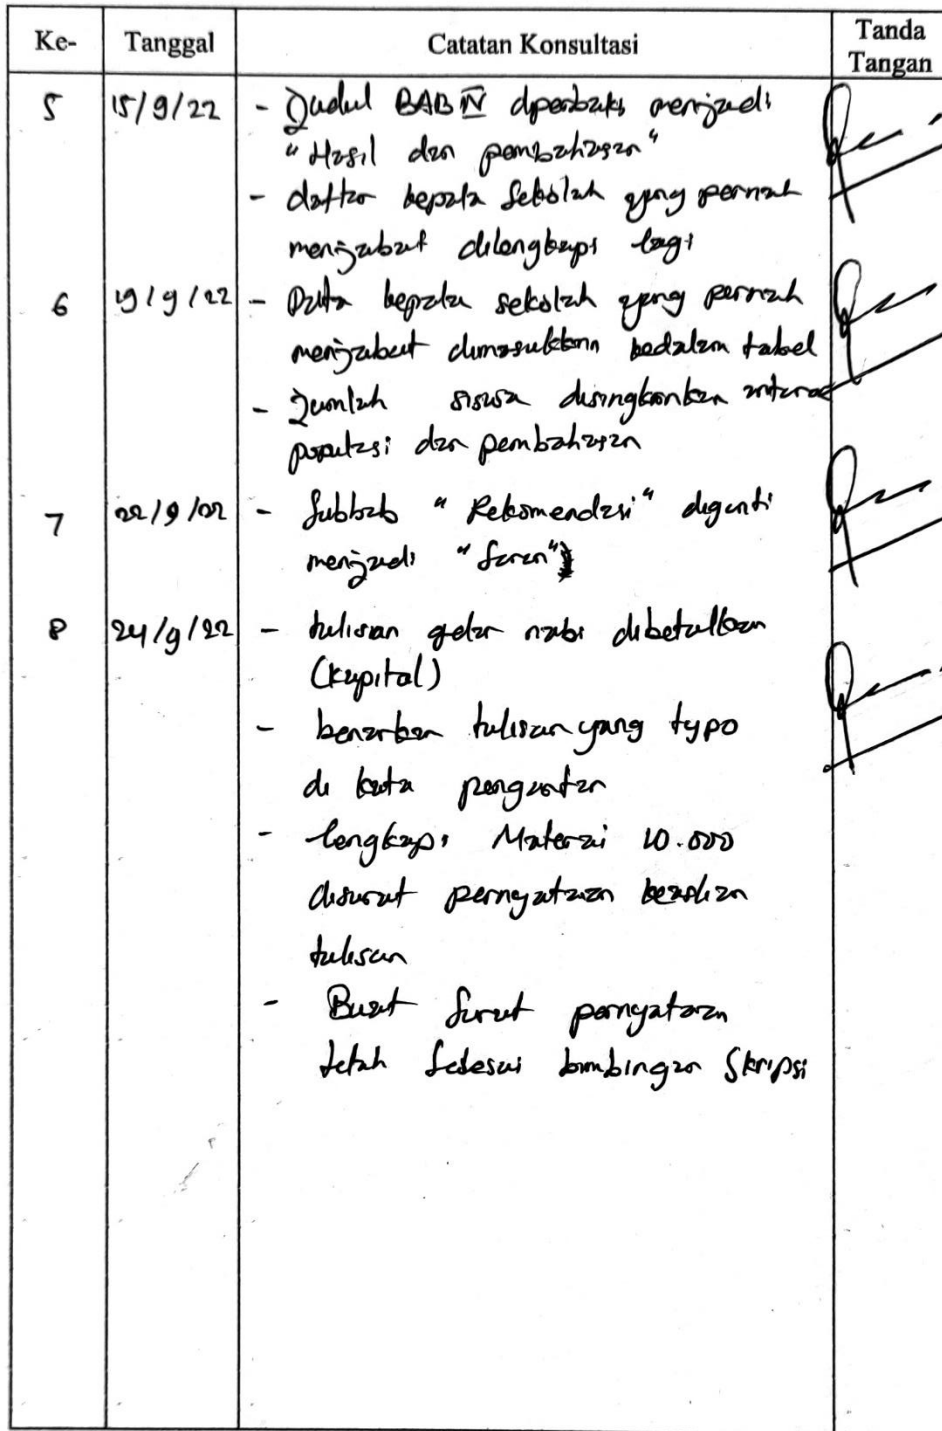 Ke- Tanggal Catatan Konsultasi Tanda Tangan
5 15/9/22 - Judul BAB IV diperbaiki menjadi
"Hasil dan pembahasan"
- daftar kepala Sekolah yang pernah
menjabat dilengkapi lagi
6 19/9/22 - Data kepala sekolah yang pernah
menjabat dimasukkan kedalam tabel
- Jumlah siswa disingkronkan antara
populasi dan pembahasan
7 22/9/22 - Subbab "Rekomendasi" diganti
menjadi "Saran"
8 24/9/22 - tulisan gelar nabi dibetulkan
(Kapital)
- benarkan tulisan yang typo
di kata pengantar
- lengkapi Materai 10.000
disurat pernyataan keaslian
tulisan
- Buat Surat pernyataan
telah Selesai bimbingan Skripsi